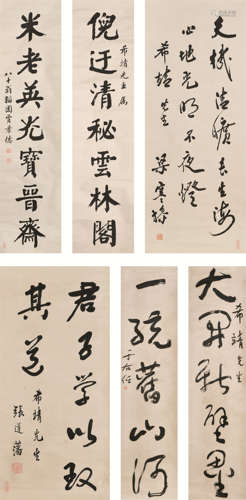 天機清曠長生海
心地光明不夜燈
希靖先生
梁寒操
希靖先生
倪迂清秘雲林閣
米老英光寶晉齋
八十翁韜園賈景德
希靖先生
大開新壁壘
一統舊山河
于右任
君子學以致
其道
希靖先生
張道藩